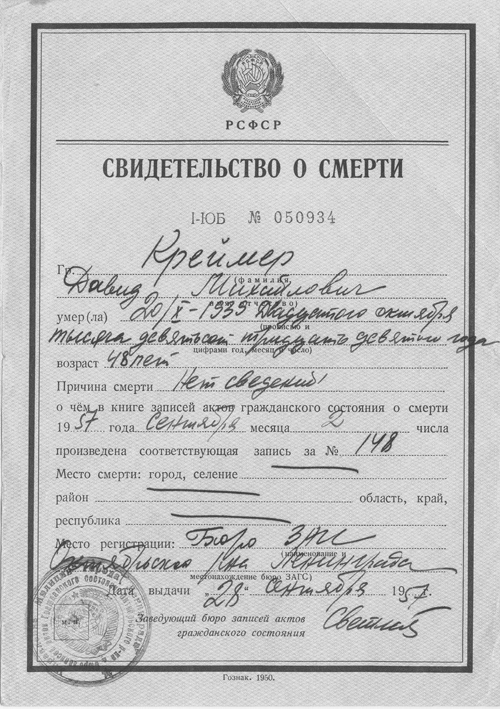 РСФСР
СВИДЕТЕЛЬСТВО О СМЕРТИ
I-ЮБ № 050934
Гр. Креймер
(фамилия,
Давид Михайлович
умер(ла) 20/X-1939 Двадцатого октября
(прописью и
тысяча девятьсот тридцать девятого года
цифрами год, месяц и число)
возраст 48 лет
Причина смерти Нет сведений
о чём в книге записей актов гражданского состояния о смерти
1957 года Сентября месяца 2 числа
произведена соответствующая запись за № 148
Место смерти: город, селение
район область, край,
республика
Место регистрации: Бюро ЗАГС
(наименование и
Октябрьского р-на Ленинграда
местонахождение бюро ЗАГС)
Дата выдачи „28" Сентября 1957 г.
Заведующий бюро записей актов
гражданского состояния
Гознак. 1950.